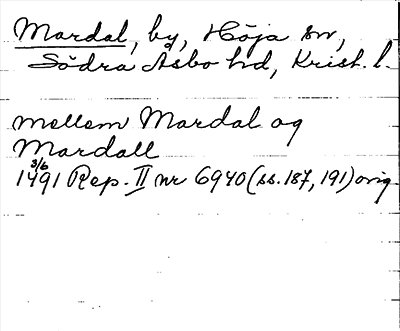 Mardal, by, Höja sn,
Södra Åsbo hd, Krist. l.
mellem Mardal og
Mardall
3/6
1491 Rep. II nr 6940 (ss. 187, 191) orig.